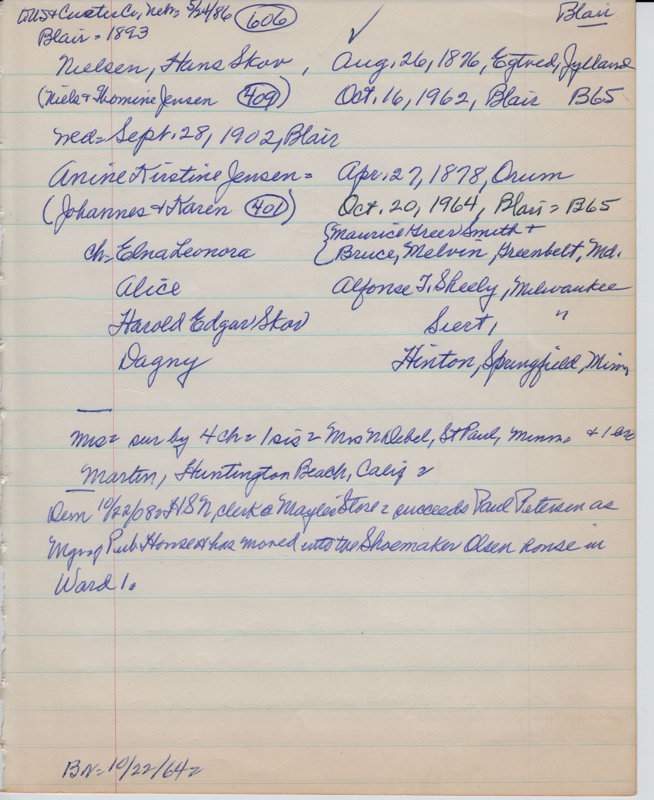 US & Custer Co, Nebr= 5/24/86 606 Blair
Blair = 1893
Nielsen, Hans Skov, Aug. 26, 1876, Egtved, Jylland
(Niels & Thomine Jensen 409) Oct. 16, 1962, Blair B65
Med= Sept. 28, 1902, Blair
Anine Kirstine Jensen = Apr. 27, 1878, Orum
(Johannes & Karen 401) Oct. 20, 1964, Blair = B65
ch- Edna Leonora {Maurice Greer Smith +
Bruce, Melvin, Greenbelt, Md.
Alice Alfonse T. Sheely, Milwaukee
Harold Edgar Skov Siert, "
Dagny Hinton, Springfield, Minn
Mrs= sur by 4 ch = 1 sis = Mrs N Debel, St Paul, Minn. & 1 bro
Martin, Huntington Beach, Calif =
Dem 10/22/08= HSN, clerk @ Store = succeeds Paul Petersen as
Mgr of Pub. House & has moved into the Shoemaker Olsen house in
Ward 1.
BN= 10/22/64=